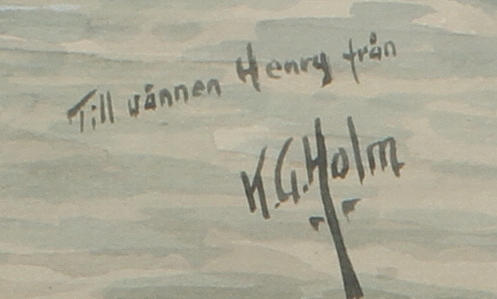 Till vännen Henry från
K.G.Holm